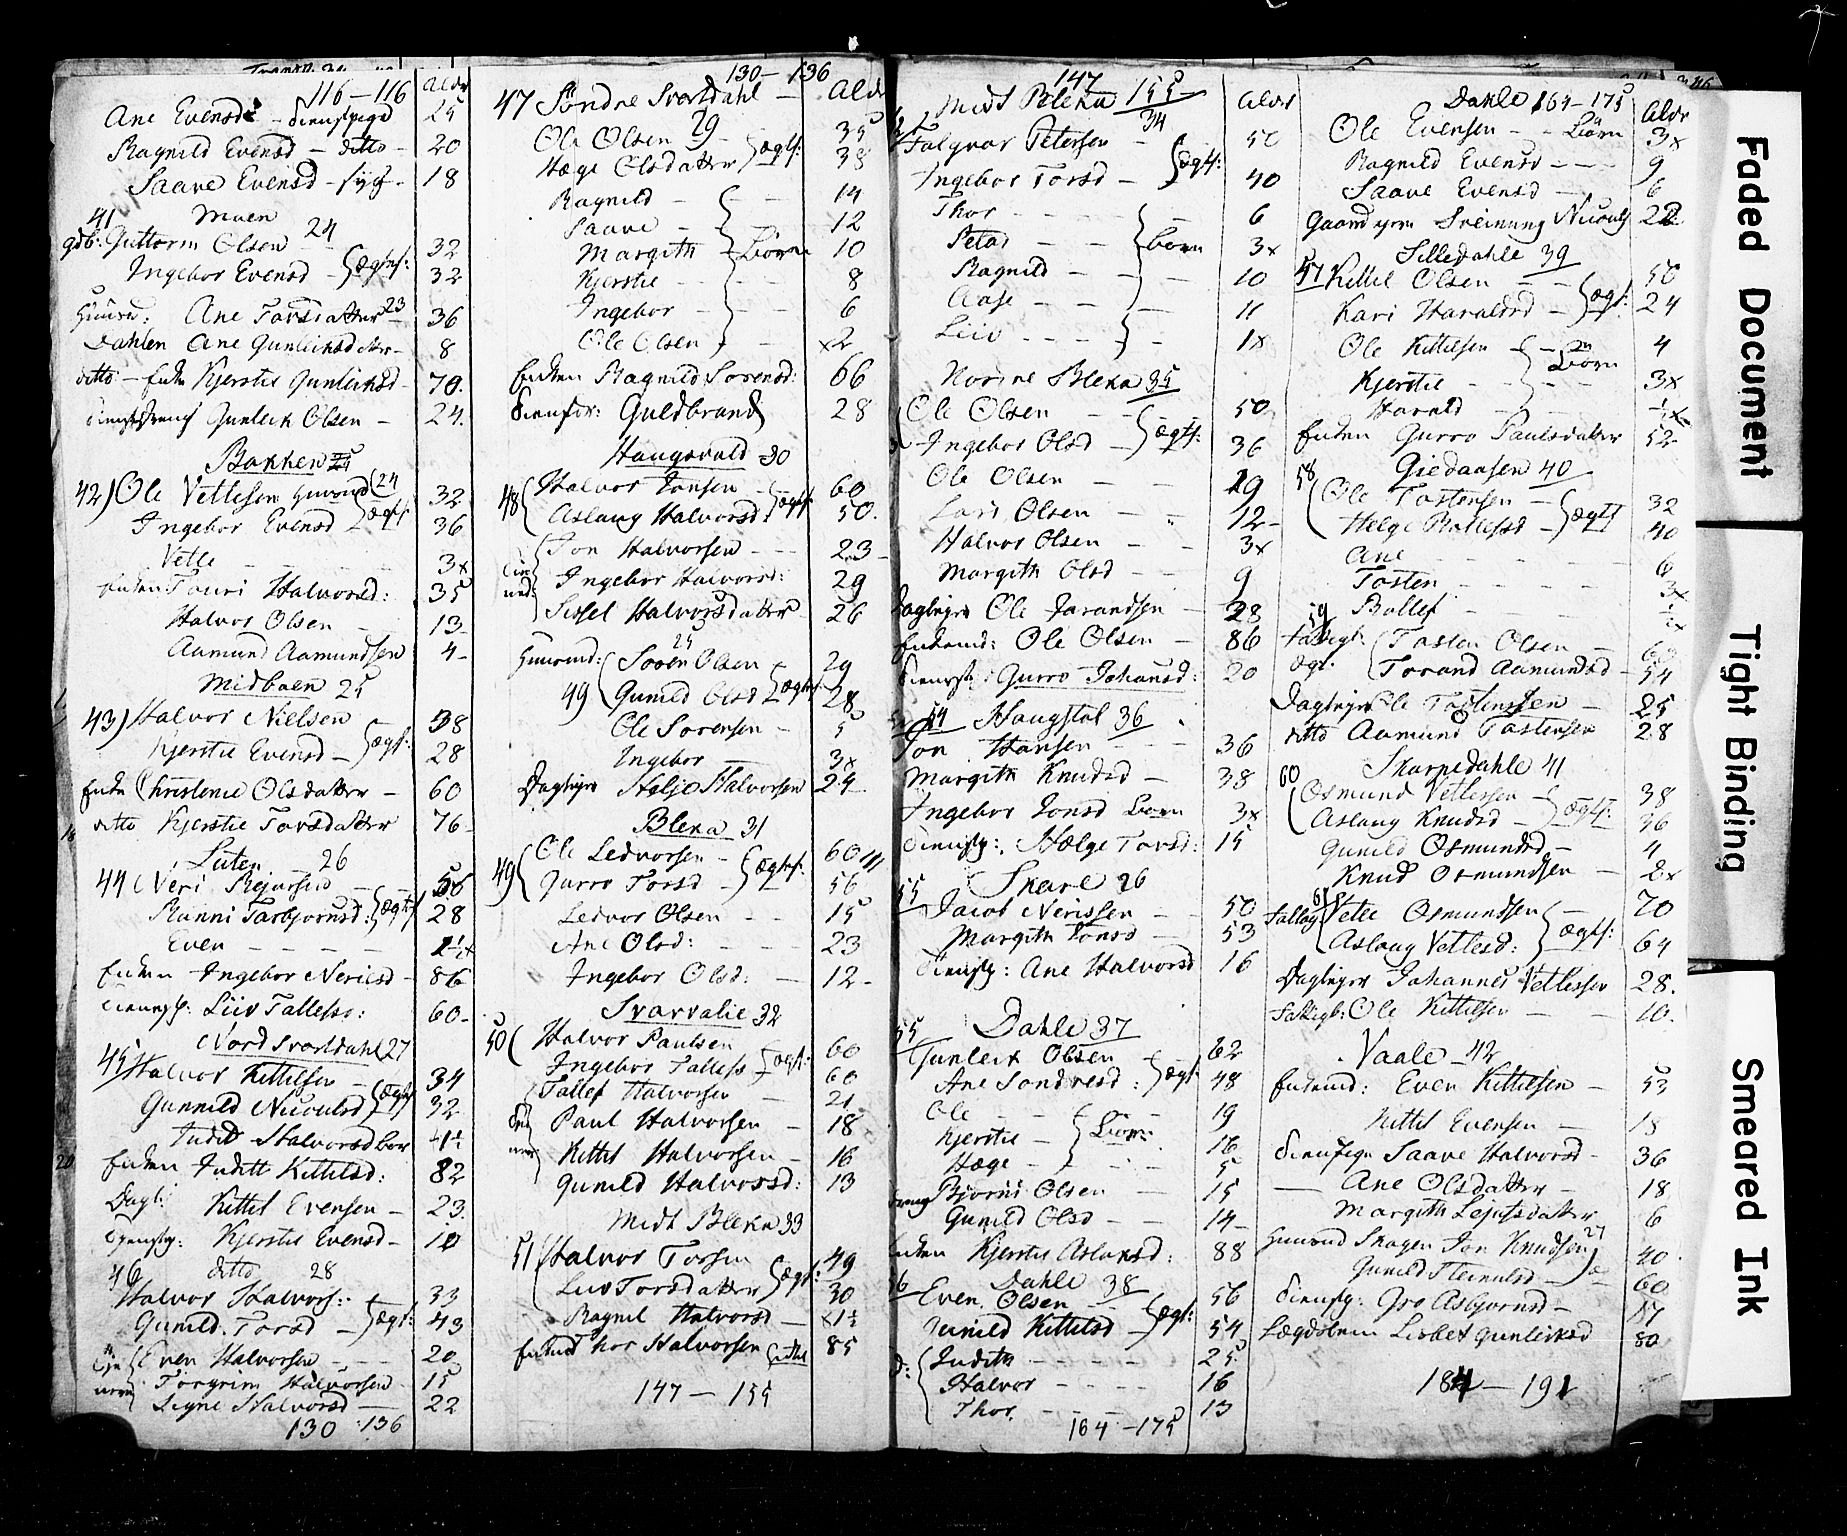 116 - 116 Aldr
Ane Evensd - dienstpige 25
Ragnild Evensd - ditto - 20
Saave Evensd - syg - 18
41 Moen
gdb: Guttorm Olsen 24 32
Ingebor Evensd - ægtf: 32
Huusd: Ane Torsdatter 23 36
Dahlen Ane Gunleiksdtr - 8
ditto - Enken Kjerstie Gunleiksd - 70.
dienstdreng Gunleik Olsen - 24.
Bakken 25
42) Ole Vetlesen Huusmd 24 32
Ingebor Evensd ægtf 36
Vetle 3x
Enken Touri Halvorsd: 35
Halvor Olsen - 13
Aamund Aamundsen 4
Midboen 25
43) Halvor Nielsen 38
Kjerstie Evensd - ægtf: 28
Enken Christence Olsdatter - 60
ditto Kjerstie Torsdatter 76
Luten 26
44 Neri Rejarsen 56
Ranni Torbjornsd: ægtf 28
Even 1½x
Enken Ingebor Nerisd - 86
dienstp: Liiv Tallefsd: 60
Nord Svartdahl 27
45 Halvor Kittilsen - 34
Gunnild Nicoulsd ægtf 32
Judit Halvorsd born 4½
Enken Judith Kittilsd: 82
Dagl: Kittil Evensen - 23.
Tjenstp: Kjerstie Evensd - 10
46 ditto 28
Halvor Halvors: 33
Gunild Torsd - ægt: 43
Even Halvorsen 20
Torgrim Halvorsen 15
Signe Halvorsd 22
130 136
130 - 136
47 Söndre Svartdahl - Aldr
Ole Olsen 29 35
Hæge Olsdatter ægtf: 38
Ragnild - 14
Saave - 12
Margith - Börn 10
Kjerstie - 8
Ingebor - 6
Ole Olsen x2
Enken Ragnild Sorensd: 66
dienstdr: Guldbrand 28
Haugsvald 30
48 Halvor Jonsen - 60
Aslaug Halvorsd: ægtf 50.
Jon Halvorsen 23
Ingebor Halvorsd: 29
Sissel Halvorsdatter 26
25
Huusmd: Soren Olsen 29
49 Gunild Olsd ægtf 28
Ole Sorensen - 5
Ingebor 3x
Daglejer Heljo Halvorsen 24
Bleka 31
49 Ole Ledvorsen - 60
Gurro Torsd - ægtf: 56
Ledvor Olsen - 15
Ane Olsd: 23
Ingebor Olsd: - 12
Svarvalie 32
50 Halvor Paulsen 60
Ingebor Tallefs ægt: 60
Tallef Halvorsen 21
Paul Halvorsen - 18
Kittil Halvorsen - 16
Gunild Halvorsd: 13
Midt Bleka 33
51 Halvor Torsen 49
Liiv Torsdatter ægt: 30
Ragnil Halvorsd x1½
Enkemd Thor Halvorsen 85
147 - 155
147
Midt Bleka 155 Aldr
34
Falgvar Petersen - 50
Ingebor Torsd - ægtf: 40
Thor 6
Petar - börn 3x
Ragnild - 10
Aase - 11
Liiv 1x
Nordre Bleka 35
Ole Olsen 50
Ingebor Olsd - ægtf: 36
Ole Olsen 19
Lars Olsen 12
Halvor Olsen 3x
Margith Olsd 9
Daglejer Ole Jarandsen 28
Enkemd: Ole Olsen 86
dienstp: Gurro Johansd: 20
54 Haugstol 36
Jon Hansen 36
Margith Knudsd - 38
Ingebor Jonsd born 3x
dienstp: Hælge Torsd: 15
55 Skare 26
Jacob Nerissen 50
Margith Jonsd 53
dienstp: Ane Halvorsd 16
55 Dahle 37
Gunleik Olsen 62
Ane Sondresd: ægt: 48
Ole 19
Kjerstie - Börn 16
Hæge - 5
dreng Bjorn Olsen 15
Gunild Olsd 14
Enken Kjerstie Aslaksd: 88
56 Dahle 38
Even Olsen - 56
Gunild Kittilsd ægt: 54
Judith 25
Halvor 16
Thor 13
164 - 175
Dahle 164 - 175 Aldr
Ole Evensen - - Börn 3x
Ragnild Evensd - 9
Saave Evensd - 6
Gaardyrm Sveinung Nicouls 22
Silledahle 39
57 Kittil Olsen 50
Kari Haraldsd ægt: 24
Ole Kittilsen - 4
Kjerstie - Börn 3x
Harald ½x
Enken Gurro Paulsdatter 52
Giedaasen 40
58 Ole Tostensen 32
Helge Bullefsd - ægtf 40
Ane 6
Tosten 3x
59 Bollef ½x
fattigl: Tosten Olsen
ægt: Torand Aamundsd 54
Daglejer Ole Tostensen 25
ditto Aamund Tostensen 28
60 Skarpedahle 41
Osmund Vetlesen 38
Aslaug Knudsd - ægtf: 36
Gunild Osmundsd - 4
Knud Osmundsen - 2x
61 fattig Vetle Osmundsen 70
Aslaug Vetlesd: ægtf: 64
Daglejer Johannes Vetlesen 28.
fattigb: Ole Kittilsen 10.
Vaale 42
Enkemd: Even Kittilsen - 53
Kittil Evensen - 15
dienstpige Saave Halvorsd 36
Ane Olsdatter - 18
Margith Lejfsdatter 6
Huusmd Skogen Jon Knudsen 27 40
Gunild Steinulsd 60
dienstp: Gro Asbjornsd - 17
Lægdslem Lisbet Gunleiksd 80
184 - 191
Faded Document
Tight Binding
Smeared Ink